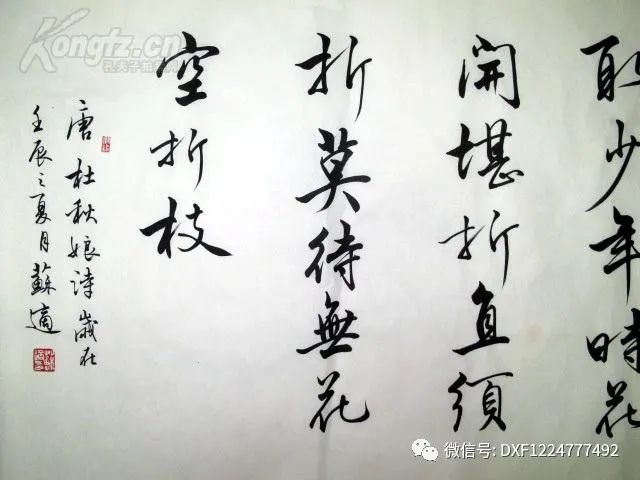 取少年時花
開堪折直須
折莫待無花
空折枝
唐杜秋娘詩歲在
壬辰之夏月蘇適
Kongfz.cn
微信号: DXF1224777492